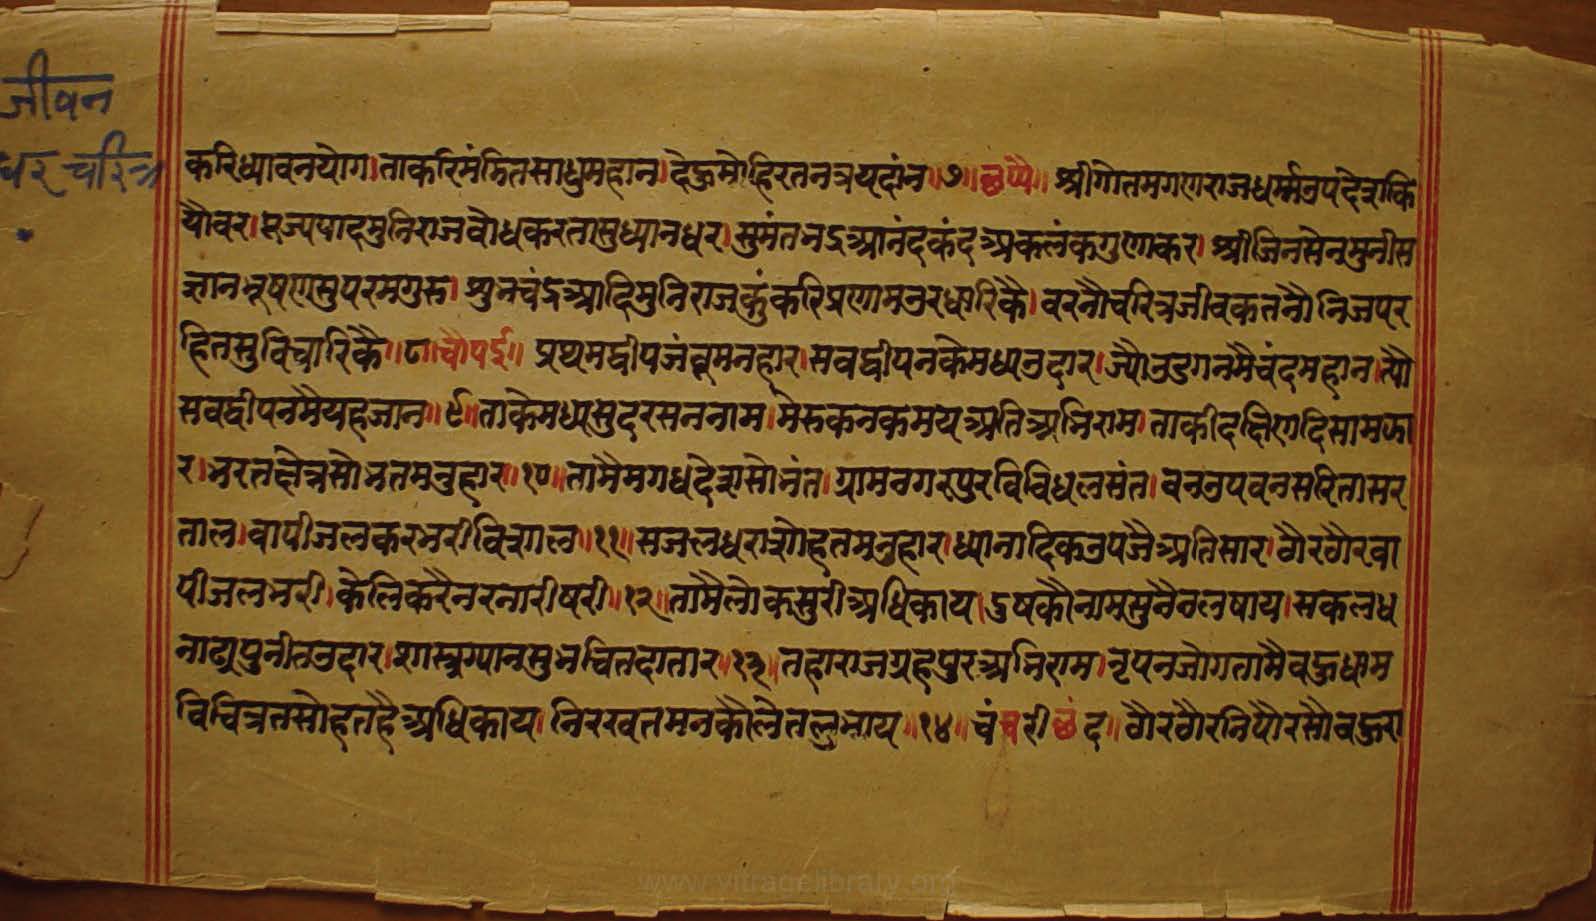 जीवन
धर चरित्र
करिध्यावनयोग।ताकरिमंडितसाधुमहान।देहुमोहिरतनत्रयदांन॥७॥छप्पै॥श्रीगोतमगणराजधर्म्मउपदेशकि
यौवर।पूज्यपादमुनिराजवोधकरतासुध्यानधर।सुमंतभद्रआनंदकंदअकलंकगुणाकर।श्रीजिनसेनमुनीस
ज्ञानभूषणसुपरमगुरु।शुभचंद्रआदिमुनिराजकुंकरिप्रणामउरधारिकै।वरनौचरित्रजीवकतनौनिजपर
हितसुविचारिकै॥८॥चौपई॥प्रथमद्वीपजंबूमनहार।सवद्वीपनकेमध्यउदार।ज्यौउडगनमैचंदमहान।त्यौ
सवद्वीपनमैयहजान॥९॥ताकेमध्यसुदरसननाम।मेरुकनकमयअतिअभिराम।ताकीदक्षिणदिसामझा
र।भरतक्षेत्रसोभतमनुहार॥१०॥तामैमगधदेशसोभंत।ग्रामनगरपुरविविधलसंत।वनउपवनसरितासर
ताल।वापीजलकरभरीविशाल॥११॥सजलधराशोहतमनुहार।ध्यानादिकउपजैअतिसार।ठौरठौरवा
पीजलभरी।केलिकरैनरनारीषरी॥१२॥तामैलोकसुरीअधिकाय।दुषकौनामसुनैनलषाय।सकलध
नाढ्यपुनीतउदार।शास्त्रग्यानसुभचितदातार॥१३॥तहाराजग्रहपुरअभिराम।नृपनजोगतामैवहुधाम
विचित्रतसोहतहैअधिकाय।निरखतमनकौलेतलुभाय॥१४॥चंचरीछंद॥ठौरठौरनिपौरसौवहुरा
www.vitragelibrary.org